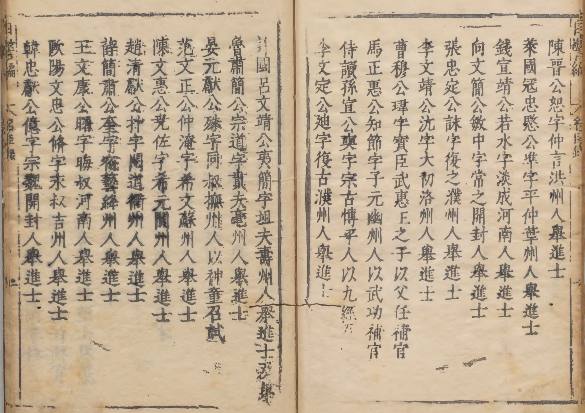 陳晉公恕字仲言洪州人舉進士
萊國寇忠愍公準字平仲華州人舉進士
錢宣靖公若水字淡成河南人舉進士
向文簡公敏中字常之開封人舉進士
張忠定公詠字復之濮州人舉進士
李文靖公沆字大初洛州人舉進士
曹穆公瑋字寶臣武惠王之子以父任補官
馬正惠公知節字子元幽州人以武功補官
侍讀孫宣公奭字宗古博平人以九經
李文定公迪字復古濮州人舉進
國呂文靖公夷簡字坦夫壽州人舉進士
魯肅簡公宗道字貫夫亳州人舉進士
晏元獻公殊字同叔撫州人以神童召試
范文正公仲淹字希文蘇州人舉進士
陳文惠公堯佐字希元閬州人舉進士
趙清獻公抃字閱道衢州人舉進士
薛簡肅公奎字宿藝絳州人舉進士
王文康公曙字晦叔河南人舉進士
歐陽文忠公脩字永叔吉州人舉進士
韓忠獻公億字宗魏開封人舉進士